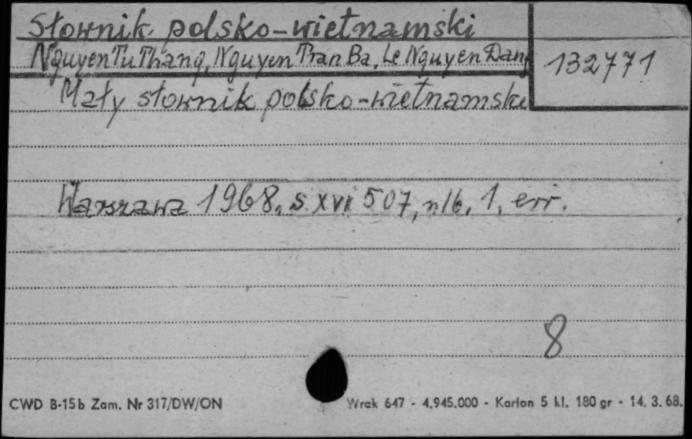 Słownik polsko-wietnamski
Nguyen Tu Thang, Nguyen Tran Ba, Le Nguyen Dang
132771
Mały słownik polsko-wietnamski
Warszawa 1968, s. XVI 507, nlb. 1, err.
8
CWD B-15b Zam. Nr 317/DW/ON
Wrak 647 - 4.945.000 - Karton 5 kl. 180 gr - 14. 3. 68.